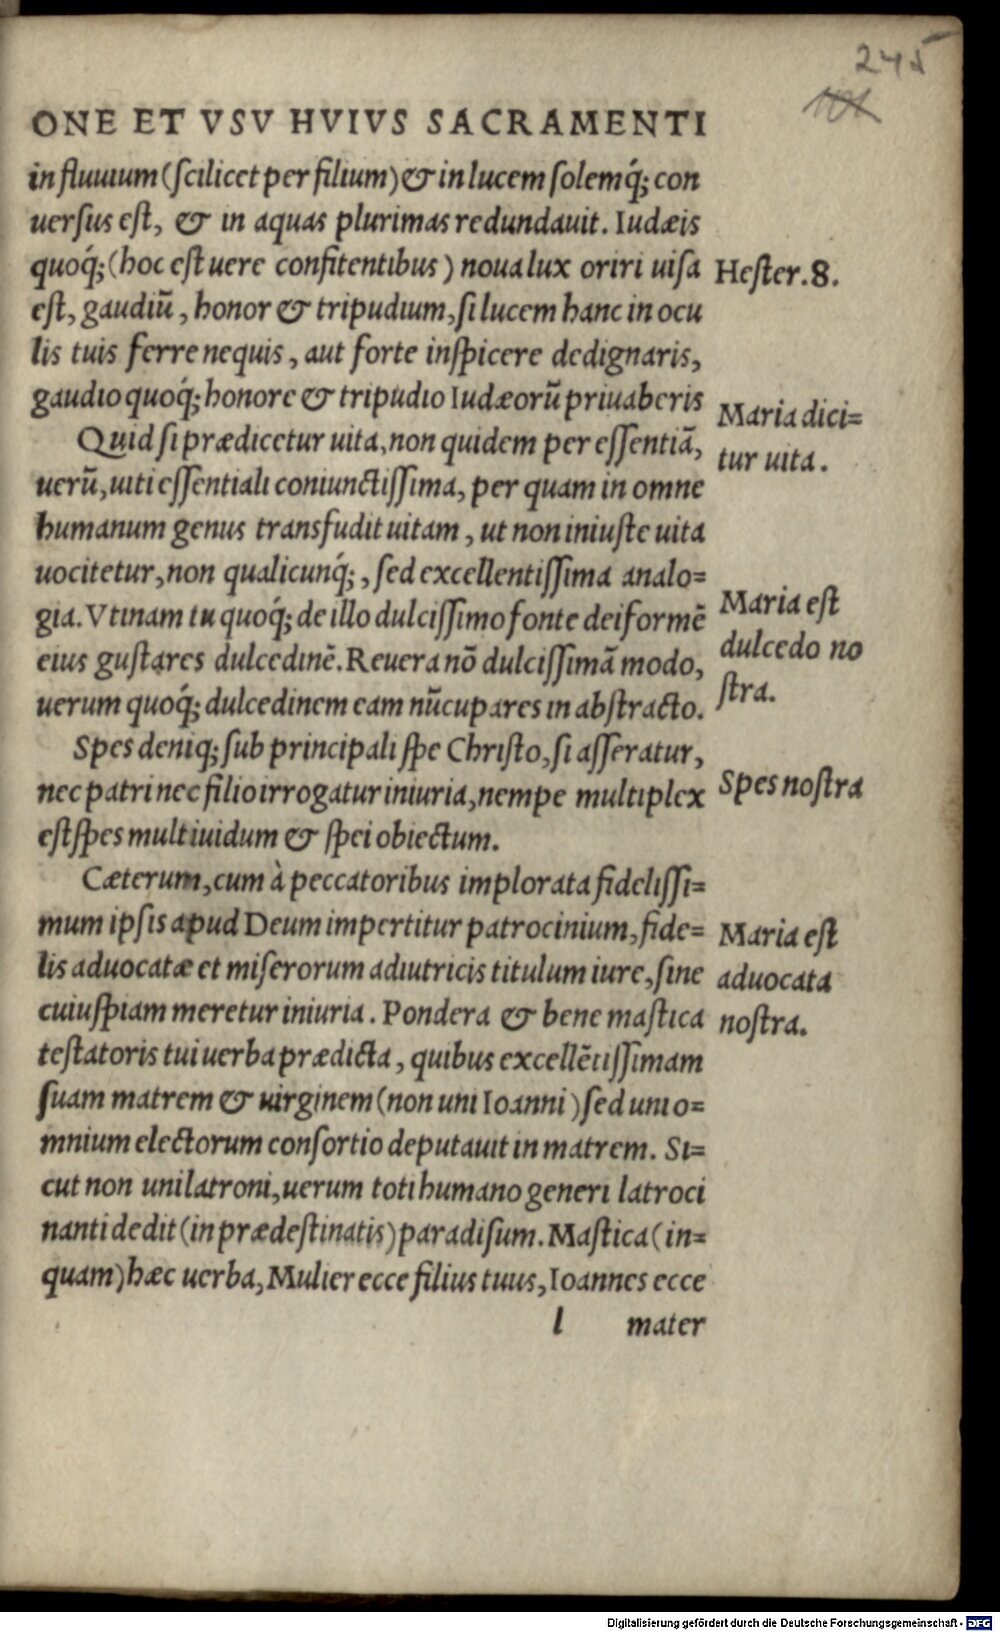 245
ONE ET VSV HVIVS SACRAMENTI
in fluuium (ſcilicet per filium) & in lucem ſolemq́; con
uerſus eſt, & in aquas plurimas redundauit. Iudæis
quoq́; (hoc eſt uere confitentibus) noua lux oriri uiſa
est, gaudiũ, honor & tripudium, ſi lucem hanc in ocu
lis tuis ferre nequis, aut forte inſpicere dedignaris,
gaudio quoq́; honore & tripudio Iudæorũ priuaberis
Quid ſi prædicetur uita, non quidem per eſſentiã,
uerũ, uiti eſſentiali coniunctiſſima, per quam in omne
humanum genus transfudit uitam, ut non iniuſte uita
uocitetur, non qualicunq́;, ſed excellentiſſima analo=
gia. Vtinam tu quoq́; de illo dulciſſimo fonte deiformẽ
eius guſtares dulcedinẽ. Reuera nõ dulciſſimã modo,
uerum quoq́; dulcedinem eam nũcupares in abſtracto.
Spes deniq; ſub principali ſpe Chriſto, ſi aſſeratur,
nec patri nec filio irrogatur iniuria, nempe multiplex
eſt ſpes multiuidum & ſpei obiectum.
Cæterum, cum à peccatoribus implorata fideliſſi=
mum ipſis apud Deum impertitur patrocinium, fide=
lis aduocatæ et miſerorum adiutricis titulum iure, ſine
cuiuſpiam meretur iniuria. Pondera & bene maſtica
teſtatoris tui uerba prædicta, quibus excellẽtiſſimam
ſuam matrem & uirginem (non uni Ioanni) ſed uni o=
mnium electorum conſortio deputauit in matrem. Si=
cut non uni latroni, uerum toti humano generi latroci
nanti dedit (in prædeſtinatis) paradiſum. Maſtica (in=
quam) hæc uerba, Mulier ecce filius tuus, Ioannes ecce
l mater
Heſter. 8.
Maria dici=
tur uita.
Maria eſt
dulcedo no
ſtra.
Spes noſtra
Maria eſt
aduocata
noſtra.
Digitalisierung gefördert durch die Deutsche Forschungsgemeinschaft - DFG